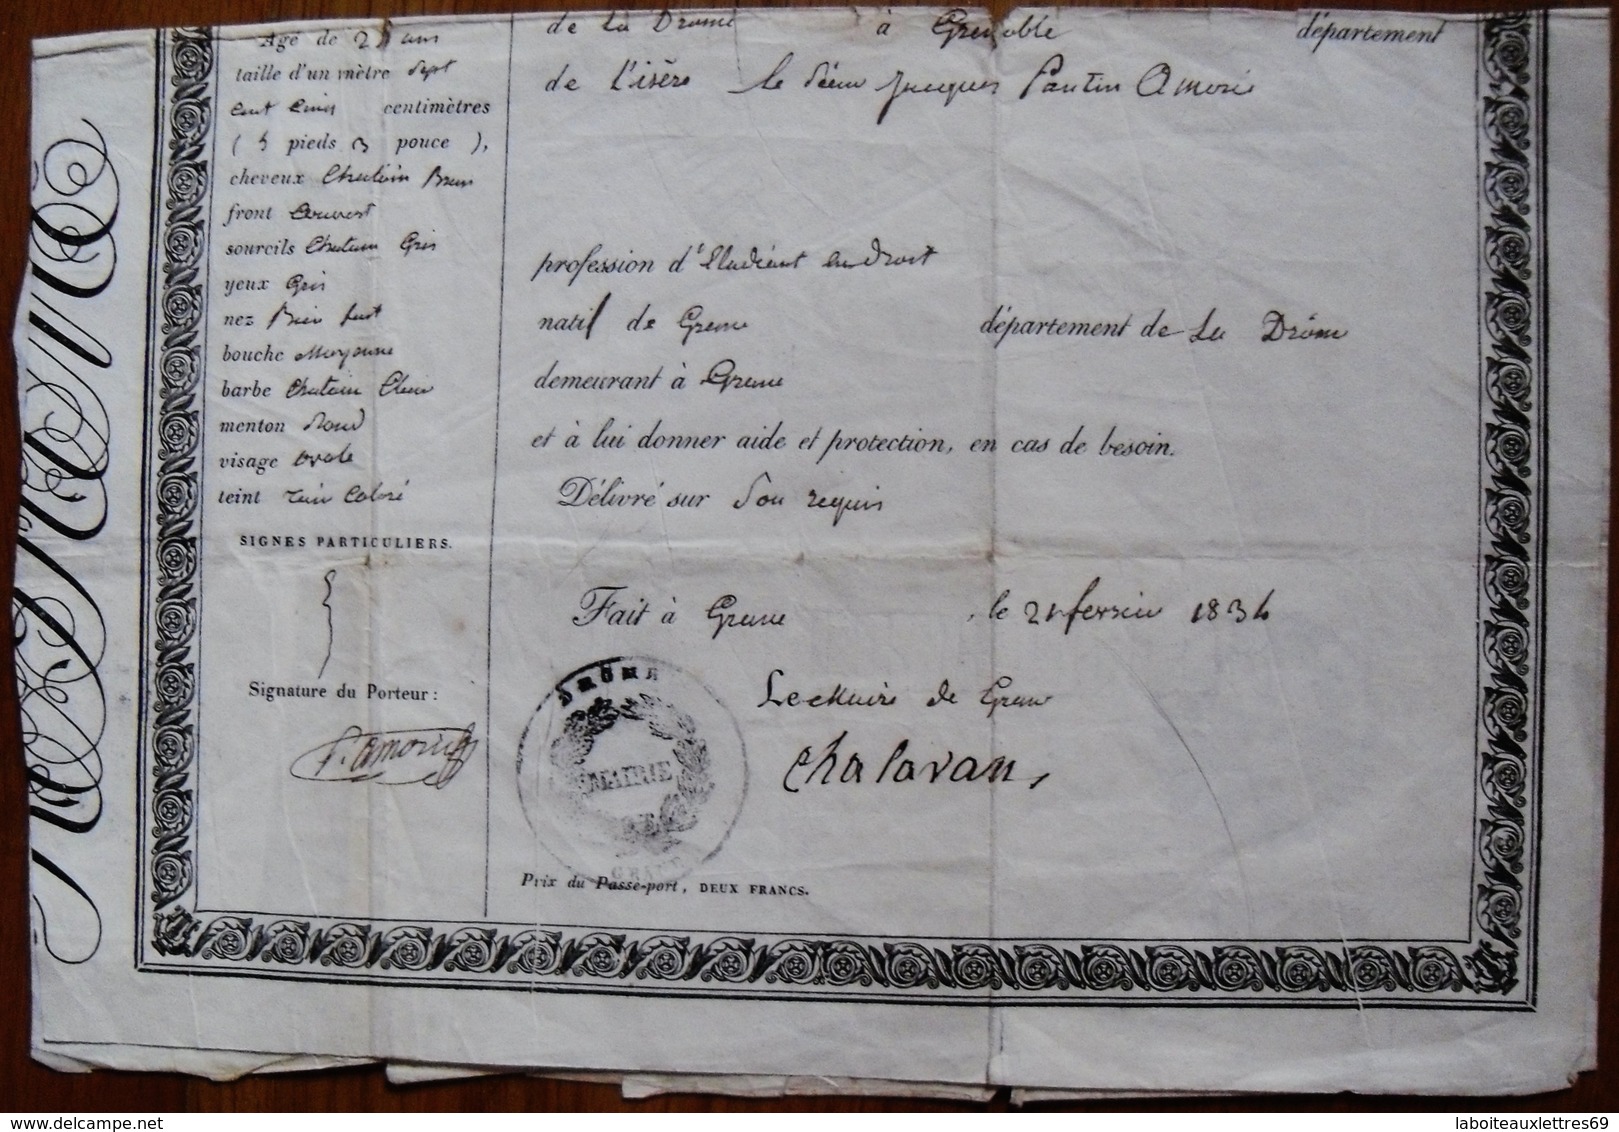 Agé de 2 ans
taille d'un mètre sept
cent cinq centimètres
( 5 pieds 3 pouce ),
cheveux Chatain Brun
front Couvert
sourcils Chatain Gris
yeux Gris
nez Bien fait
bouche Moyenne
barbe Chatain Clair
menton Rond
visage ovale
teint Coloré
SIGNES PARTICULIERS.
Signature du Porteur :
P. Amorié
de La Drome à Grenoble département
de L'isère le Sieur Jacques Pantin Amorié
profession d'Etudiant en droit
natif de Grane département de La Drôme
demeurant à Grane
et à lui donner aide et protection, en cas de besoin.
Délivré sur Son requis
Fait à Grane , le 21 fevrier 1834
Le Maire de Grane
Chalavan
DRÔME
MAIRIE
DE
GRANE
Prix du Passe-port, DEUX FRANCS.
delcampe.net
laboiteauxlettres69